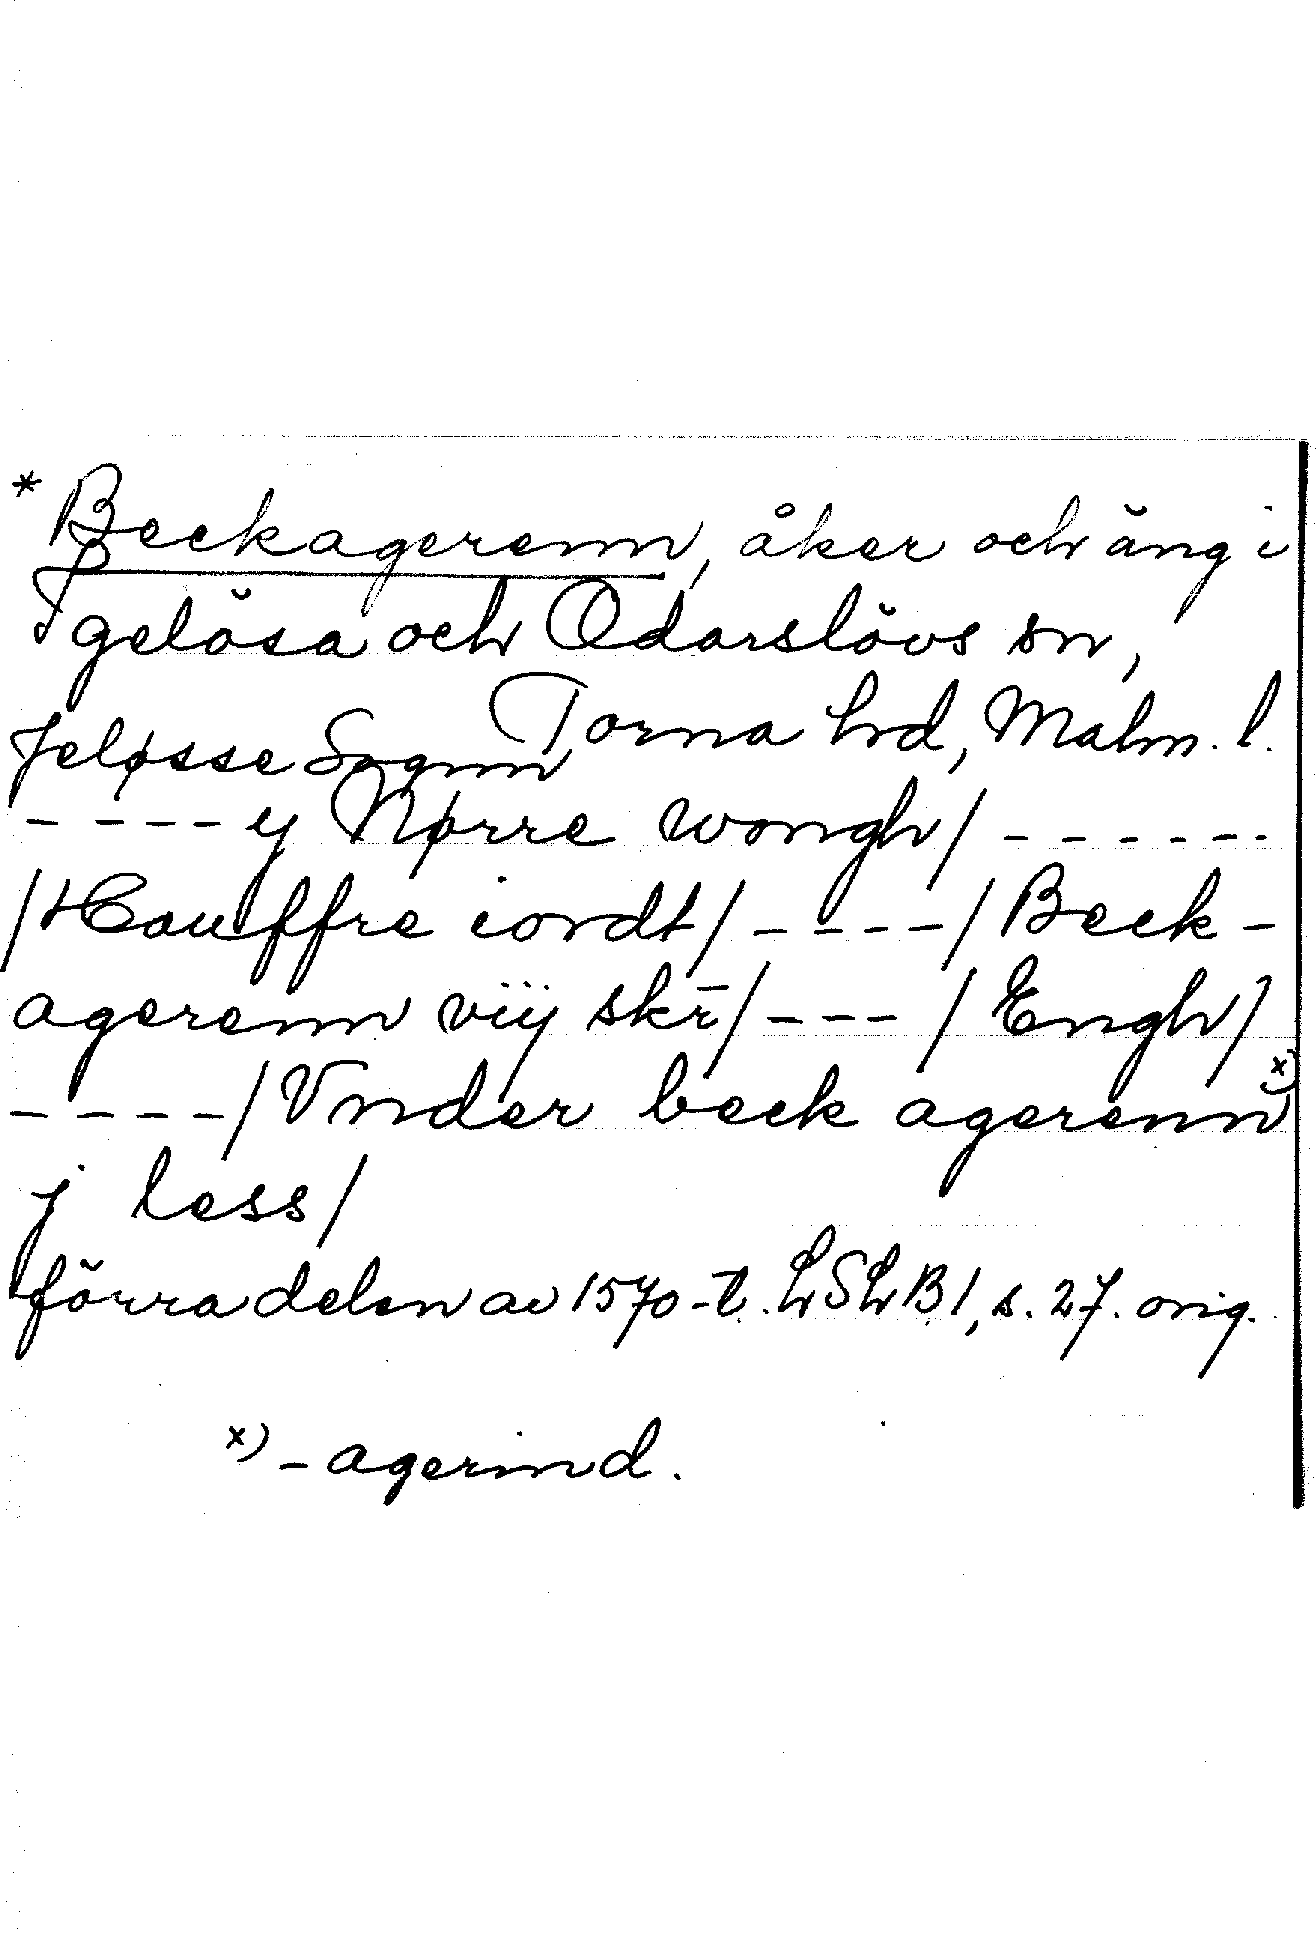 * Beckagerenn, åker och äng i
Igelösa och Odarslövs sn,
Torna hd, Malm. l.
Jeløsse Sognn
- - - - y Nørre wongh/ - - - - - -
/Houffre iordt/ - - - - /Beck-
agerenn viij skr̄/ - - - / Engh/
- - - - /Vnder beck agerenn x)
j less/
förra delen av 1570-t. LSLB 1, s. 27. orig.
x) - agerind.